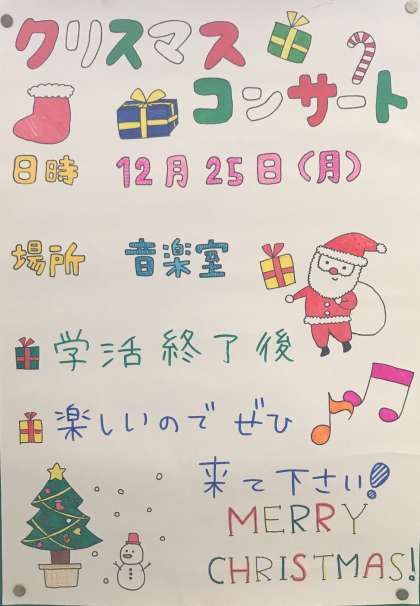 クリスマス
コンサート
日時 12月25日(月)
場所 音楽室
学活終了後
楽しいので ぜひ
来て下さい!
MERRY
CHRISTMAS!